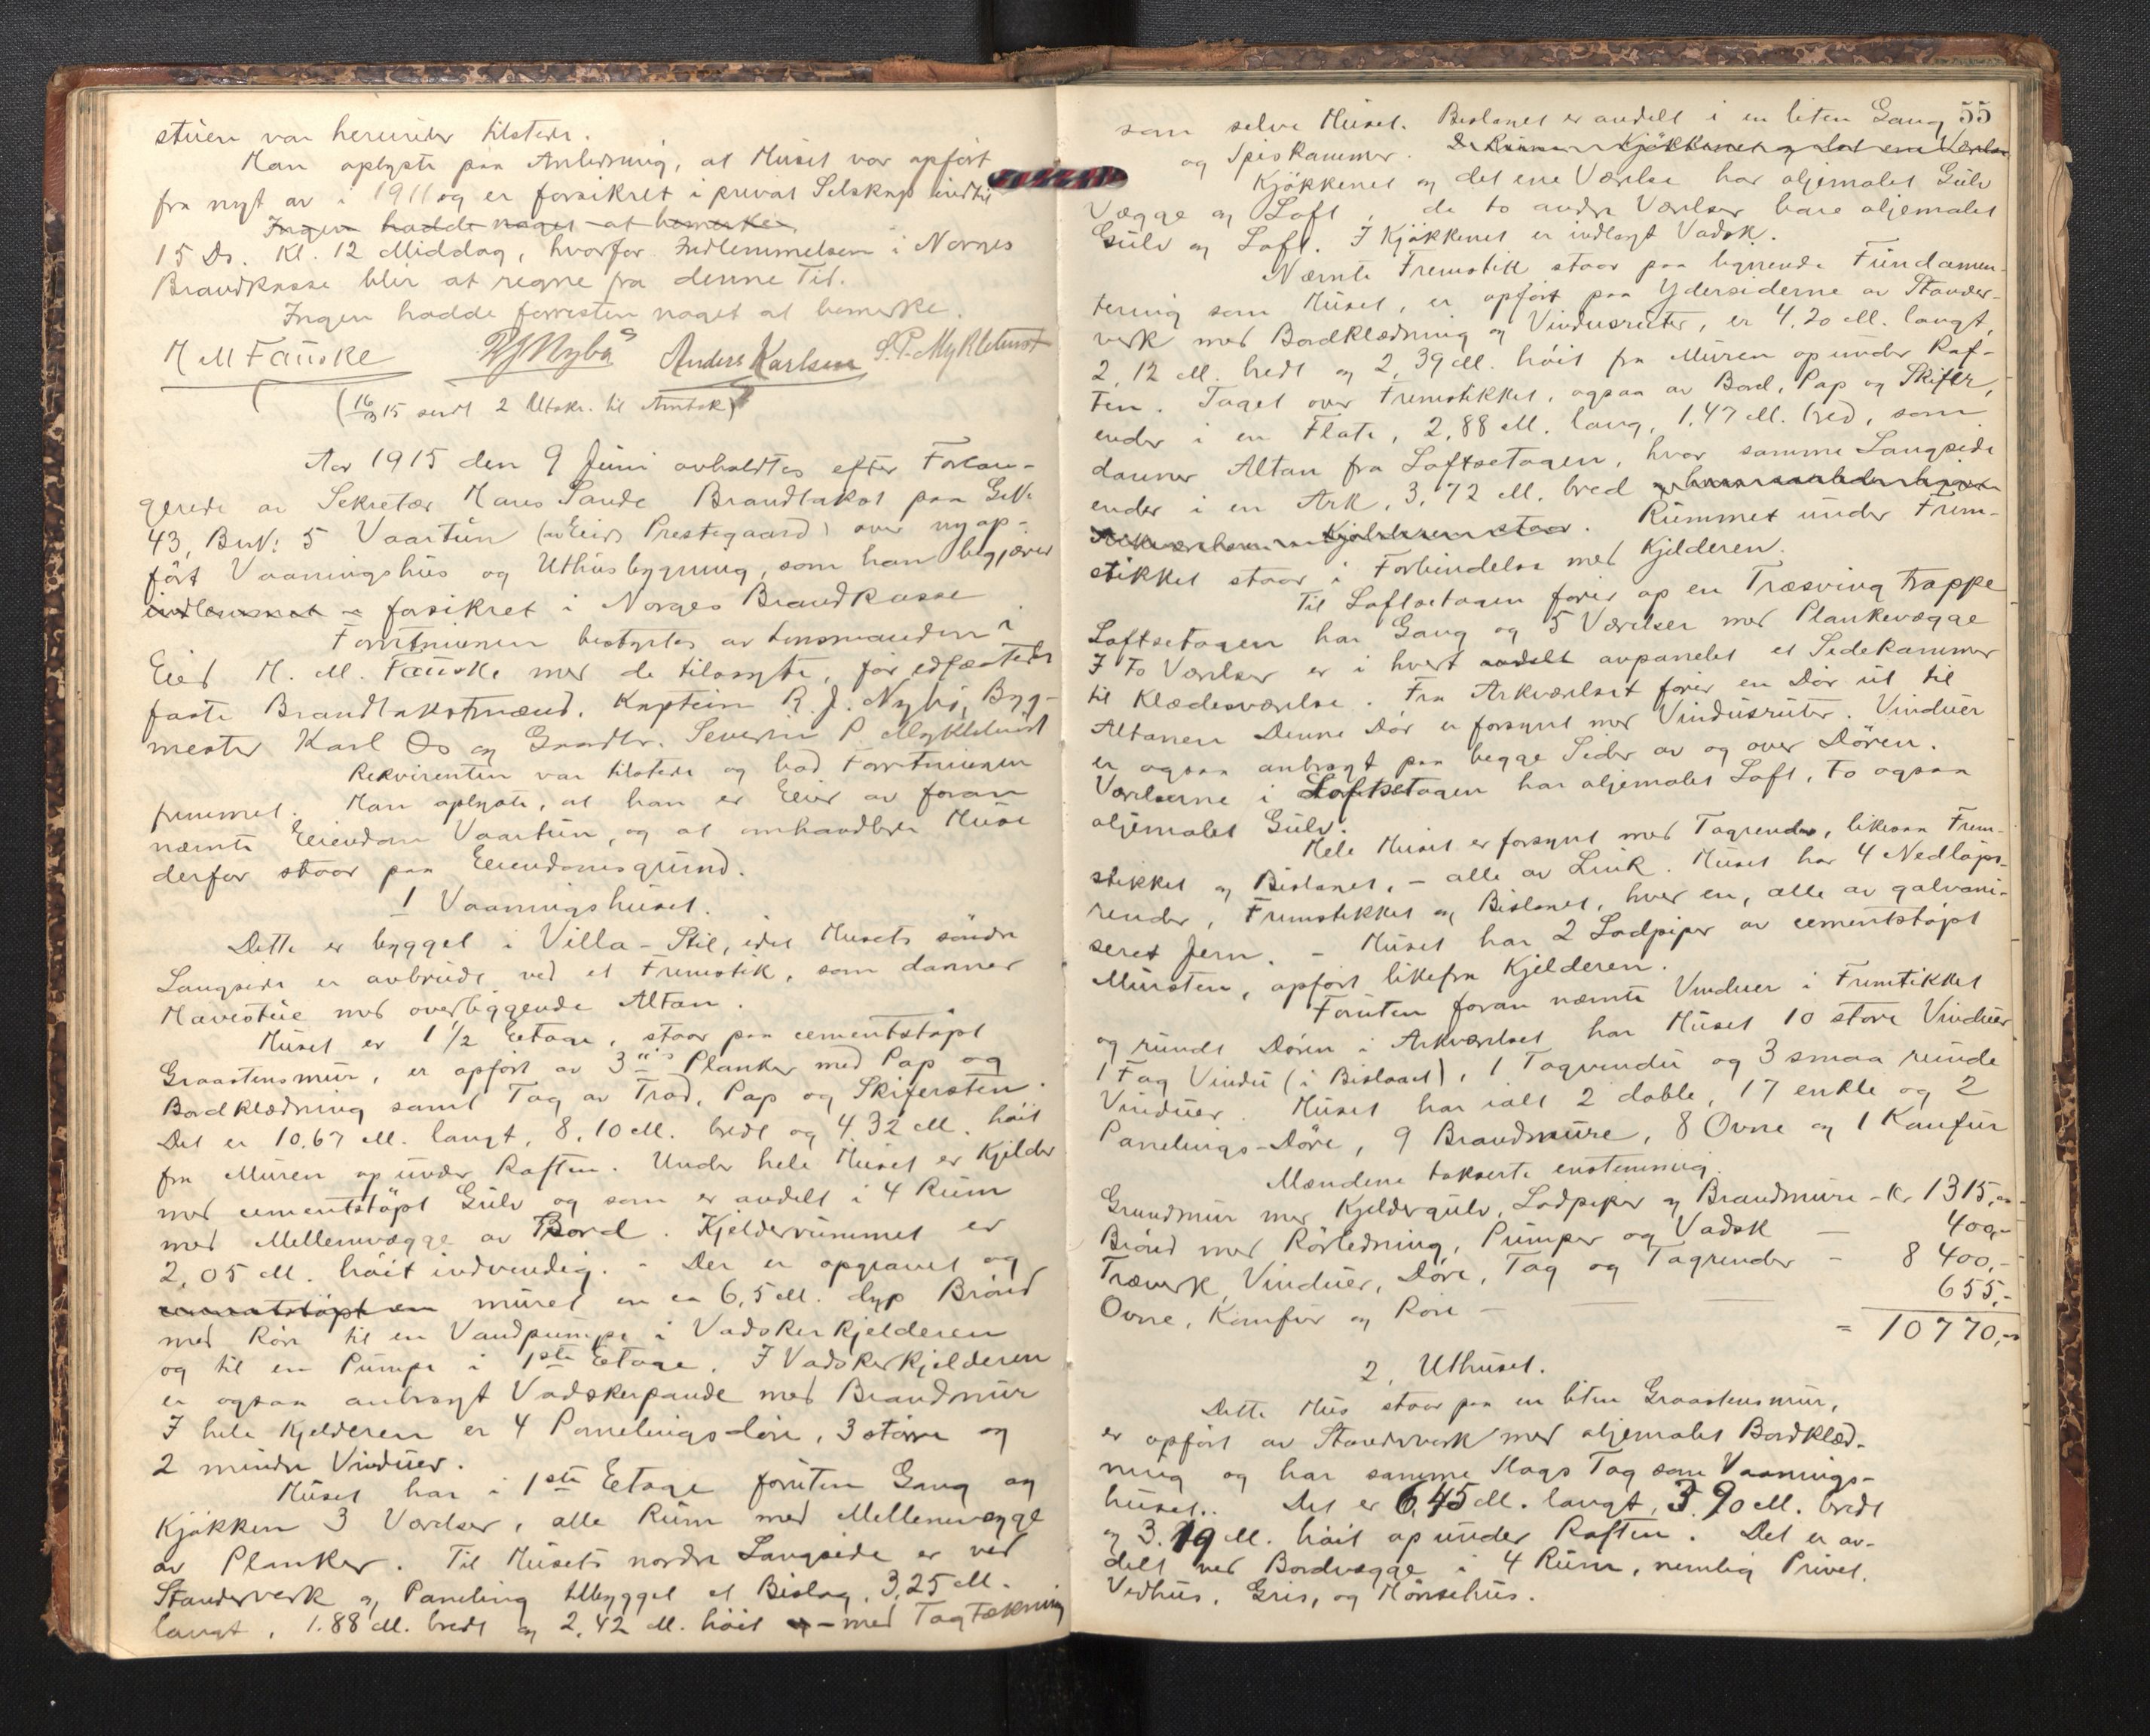 stuen var herunder tilstede.
Han oplyste paa Anledning, at Huset var opført
fra nyt av i 1911 og er forsikret i privat Selskap indtil
Ingen hadde noget at bemerke.
15 Ds. Kl. 12 Middag, hvorfor Indlemmelsen i Norges
Brandkasse blir at regne fra denne Tid.
Ingen hadde forresten noget at bemerke.
H M Fauske R J Nybø Anders Karlsen S. P. Myklebust
(16/3 15 sendt 2 Utskr. til Amtsk)
Aar 1915 den 9 Juni avholdtes efter Forlan-
gende av Sekretær Hans Sande Brandtakst paa G.N.
43, B.N. 5 Vaartun (av Eids Prestegaard) over nyop-
ført Vaaningshus og Uthusbygning, som han begjærer
indlemmet forsikret i Norges Brandkasse
Forretningen bestyrtes av Lensmanden i
Eid H. M. Fauske med de tilosyte, før edfæstede
faste Brandtakstmænd, Kaptein R. J. Nybø, Byg-
mester Karl Os og Gaardbr. Severin P. Myklebust
Rekvirenten var tilstede og bad Forretningen
fremmet. Han oplyste, at han er Eier av foran
nævnte Eiendom Vaartun, og at omhandlede Huse
derfor staar paa Eiendomsgrund.
1 Vaaningshuset.
Dette er bygget i Villa-Stil, idet Husets søndre
Langside er avbrudt ved et Fremstik, som danner
Havestue med overliggende Altan.
Huset er 1 1/2 Etage, staar paa cementstøpt
Graastensmur, er opført av 3" Planker med Pap og
Bordklædning samt Tag av Træ, Pap og Skifersten.
Det er 10,67 M. langt, 8,10 M. bredt og 4,32 M. høit
fra Muren op under Raften. Under hele Huset er Kjelder
med cementstøpt Gulv og som er avdelt i 4 Rum
med Mellemvægge av Bord. Kjelderrummet er
2,05 M. høit indvendig. - Der er opgravet og
cementstøpt en muret en ca 6,5 M. dyp Brønd
med Rør til en Vandpumpe i Vadskerkjelderen
og til en Pumpe i 1ste Etage. I Vadskerkjelderen
er ogsaa anbragt Vadskerpande med Brandmur
I hele Kjelderen er 4 Panelingsdøre, 3 større og
2 mindre Vinduer.
Huset har i 1ste Etage foruten Gang og
Kjøkken 3 Værelser, alle Rum med Mellemvægge
av Planker. Til Husets nordre Langside er ved
Standerverk og Paneling tilbygget et Bislag, 3,25 M.
langt, 1.88 M. bredt og 2,42 M. høit - med Tagtækning
55
som selve Huset. Bislaget er avdelt i en liten Gang
og Spiskammer. Kjøkkenet og det ene Værelse
Kjøkkenet og det ene Værelse har oljemalet Gulv
Vægge og Loft, de to andre Værelser bare oljemalet
Gulv og Loft. I Kjøkkenet er indlagt Vadsk.
Nævnte Fremstik staar paa lignende Fundamen-
tering som Huset, er opført paa Ydersiderne av Stander-
verk med Bordklædning og Vindusruter, er 4.20 M. langt,
2,12 M. bredt og 2,39 M. høit fra Muren op under Raf-
ten. Taget over Fremstikket, ogsaa av Bord, Pap og Skifer,
ender i en Flate, 2,88 M. lang, 1,47 M. bred, som
danner Altan fra Loftsetagen, hvor samme Langside
ender i en Ark, 3,72 M. bred
Rummet under Frem-
stikket staar i Forbindelse med Kjelderen.
Til Loftsetagen fører op en Træsvingtrappe
Loftsetagen har Gang og 5 Værelser med Plankevægge
I to Værelser er i hvert avdelt avpanelet et Sidekammer
til Klædesværelse. Fra Arkværelset fører en Dør ut til
Altanen Denne Dør er forsynt med Vindusruter. Vinduer
er ogsaa anbragt paa begge Sider av og over Døren.
Værelserne i Loftsetagen har oljemalet Loft, to ogsaa
oljemalet Gulv.
Hele Huset er forsynt med Tagrender, likesaa Frem-
stikket og Bislaget, - alle av Zink. Huset har 4 Nedløps-
render, Fremstikket og Bislaget, hver en, alle av galvani-
seret Jern. - Huset har 2 Lodpiper av cementstøpt
Mursten, opført like fra Kjelderen.
Foruten foran nævnte Vinduer i Fremstikket
og rundt Døren i Arkværelset har Huset 10 store Vinduer
1 Fag Vindu (i Bislaget), 1 Tagvindu og 3 smaa runde
Vinduer. Huset har ialt 2 doble, 17 enkle og 2
Panelings-Døre, 9 Brandmure, 8 Ovne og 1 Komfur
Mændene takserte enstemmig:
Grundmur med Kjeldergulv, Lodpiper og Brandmure - Kr 1315,-
Brønd med Rørledning, Pumper og Vadsk - 400,-
Træverk, Vinduer, Døre, Tag og Tagrender - 8 400,-
Ovne, Komfur og Rør - 655,-
= 10770,-
2, Uthuset.
Dette Hus staar paa en liten Graastensmur,
er opført av Standerverk med oljemalet Bordklæd-
ning og har samme Slags Tag som Vaanings-
huset. Det er 6,45 M. langt, 3.90 M. bredt
og 3.19 M. høit op under Raften. Det er av-
delt ved Bordvægge i 4 Rum, nemlig Privet,
Vedhus, Gris, og Hønsehus.